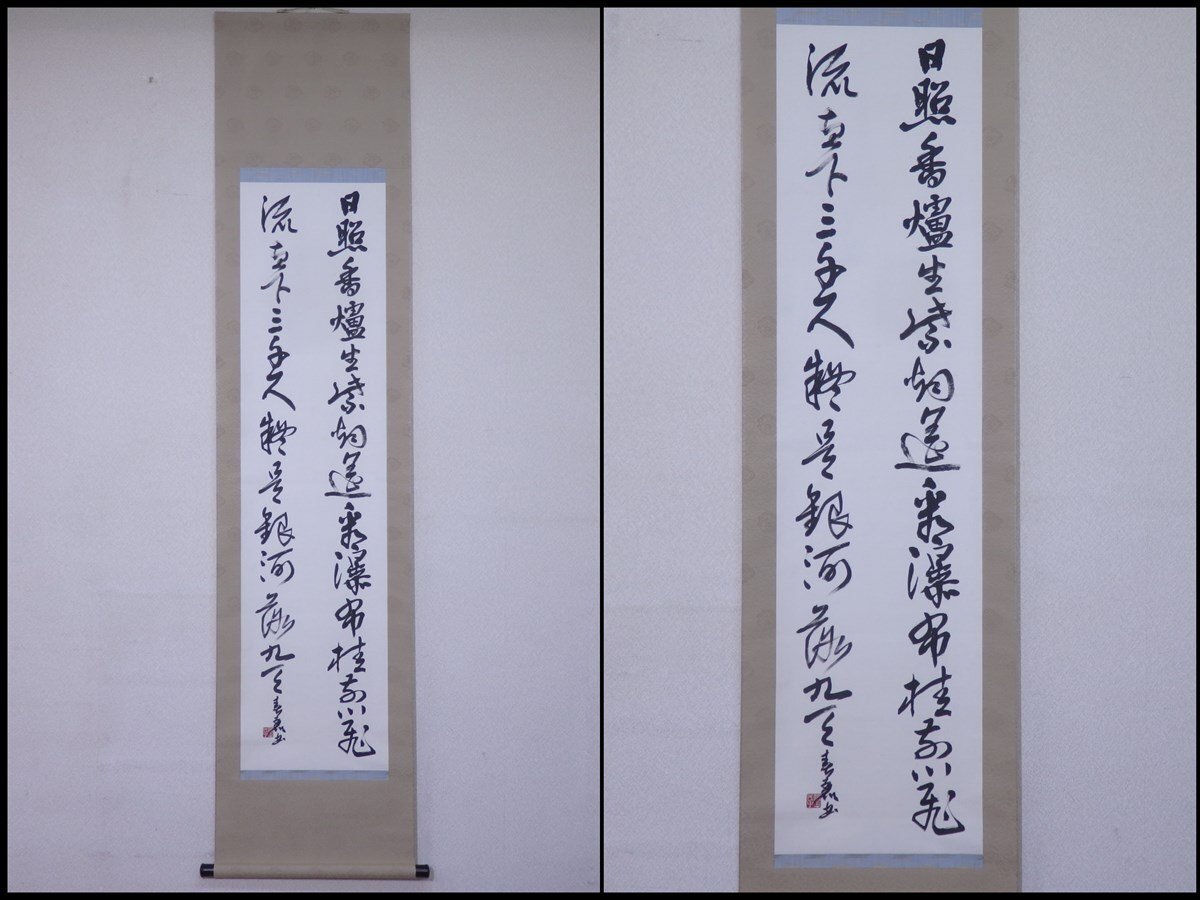 日照香爐生紫烟遙看瀑布挂前川飛
流直下三千尺疑是銀河落九天 春 書
日照香爐生紫烟遙看瀑布挂前川飛
流直下三千尺疑是銀河落九天 春 書